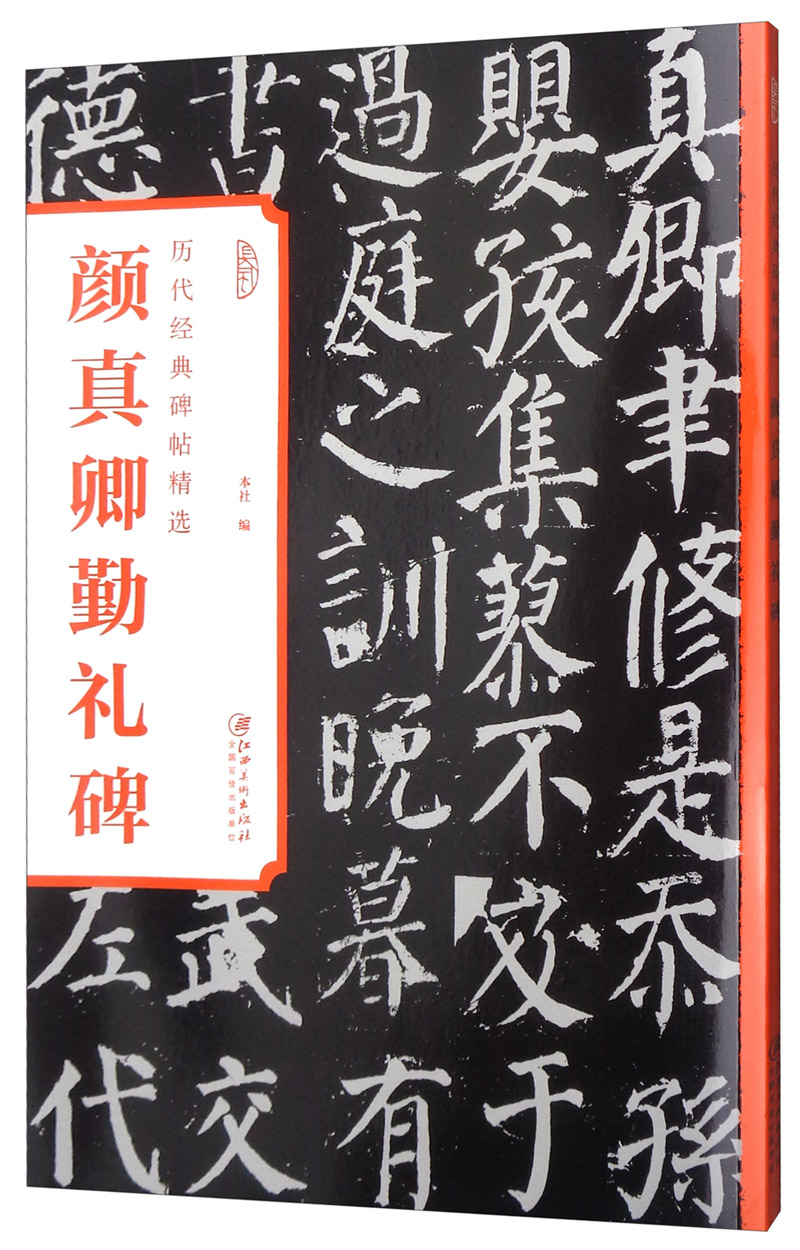 真卿聿修是忝孫
嬰孩集蓼不及于
過庭之訓晚暮有
書
武交
德
左代
历代经典碑帖精选
颜真卿勤礼碑
本社 编
江西美術出版社
全国百佳出版单位
颜真卿勤礼碑